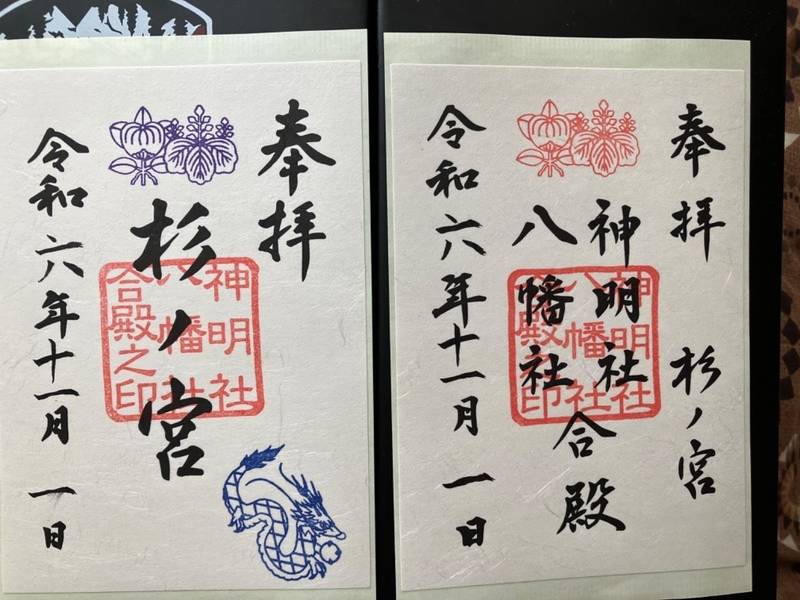 奉拝 杉ノ宮
神明社
八幡社
合殿
令和六年十一月一日
神明社
八幡社
合殿之印
奉拝
杉ノ宮
令和六年十一月一日
神明社
八幡社
合殿之印